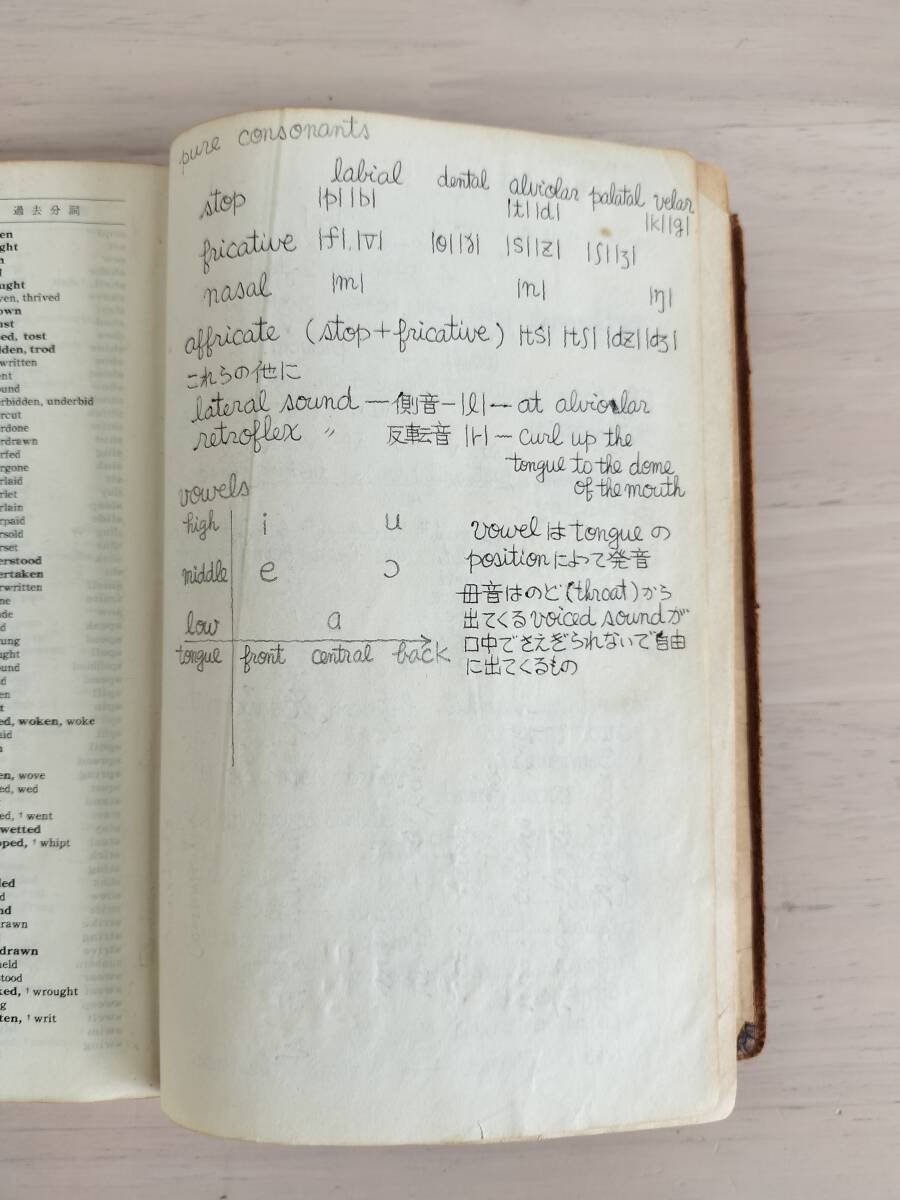 過去分詞
en
ght
n
d
ught
ven, thrived
own
ust
ed, tost
dden, trod
written
ent
ound
erbidden, underbid
ercut
erdone
erdrawn
erfed
ergone
erlaid
erlet
erlain
erpaid
ersold
erset
erstood
ertaken
erwritten
ne
ade
d
ung
ught
ound
d
en
t
ed, woken, woke
aid
n
en, wove
ed, wed
ed, † went
wetted
pped, † whipt
ded
d
nd
rawn
drawn
held
stood
ked, † wrought
g
ten, † writ
pure consonants
labial dental alviolar palatal velar
stop |p| |b| |t| |d| |k| |g|
fricative |f|, |v| |θ| |ð| |s| |z| |ʃ| |ʒ|
nasal |m| |n| |ŋ|
affricate (stop+fricative) |ts| |tʃ| |dz| |dʒ|
これらの他に
lateral sound — 側音 - |l| — at alviolar
retroflex 〃 反転音 |r| — curl up the
tongue to the dome
of the mouth
vowels
high i u
middle e ɔ
low a
tongue front central back
vowel は tongue の
position によって発音
母音はのど(throat)から
出てくる voiced sound が
口中でさえぎられないで自由
に出てくるもの